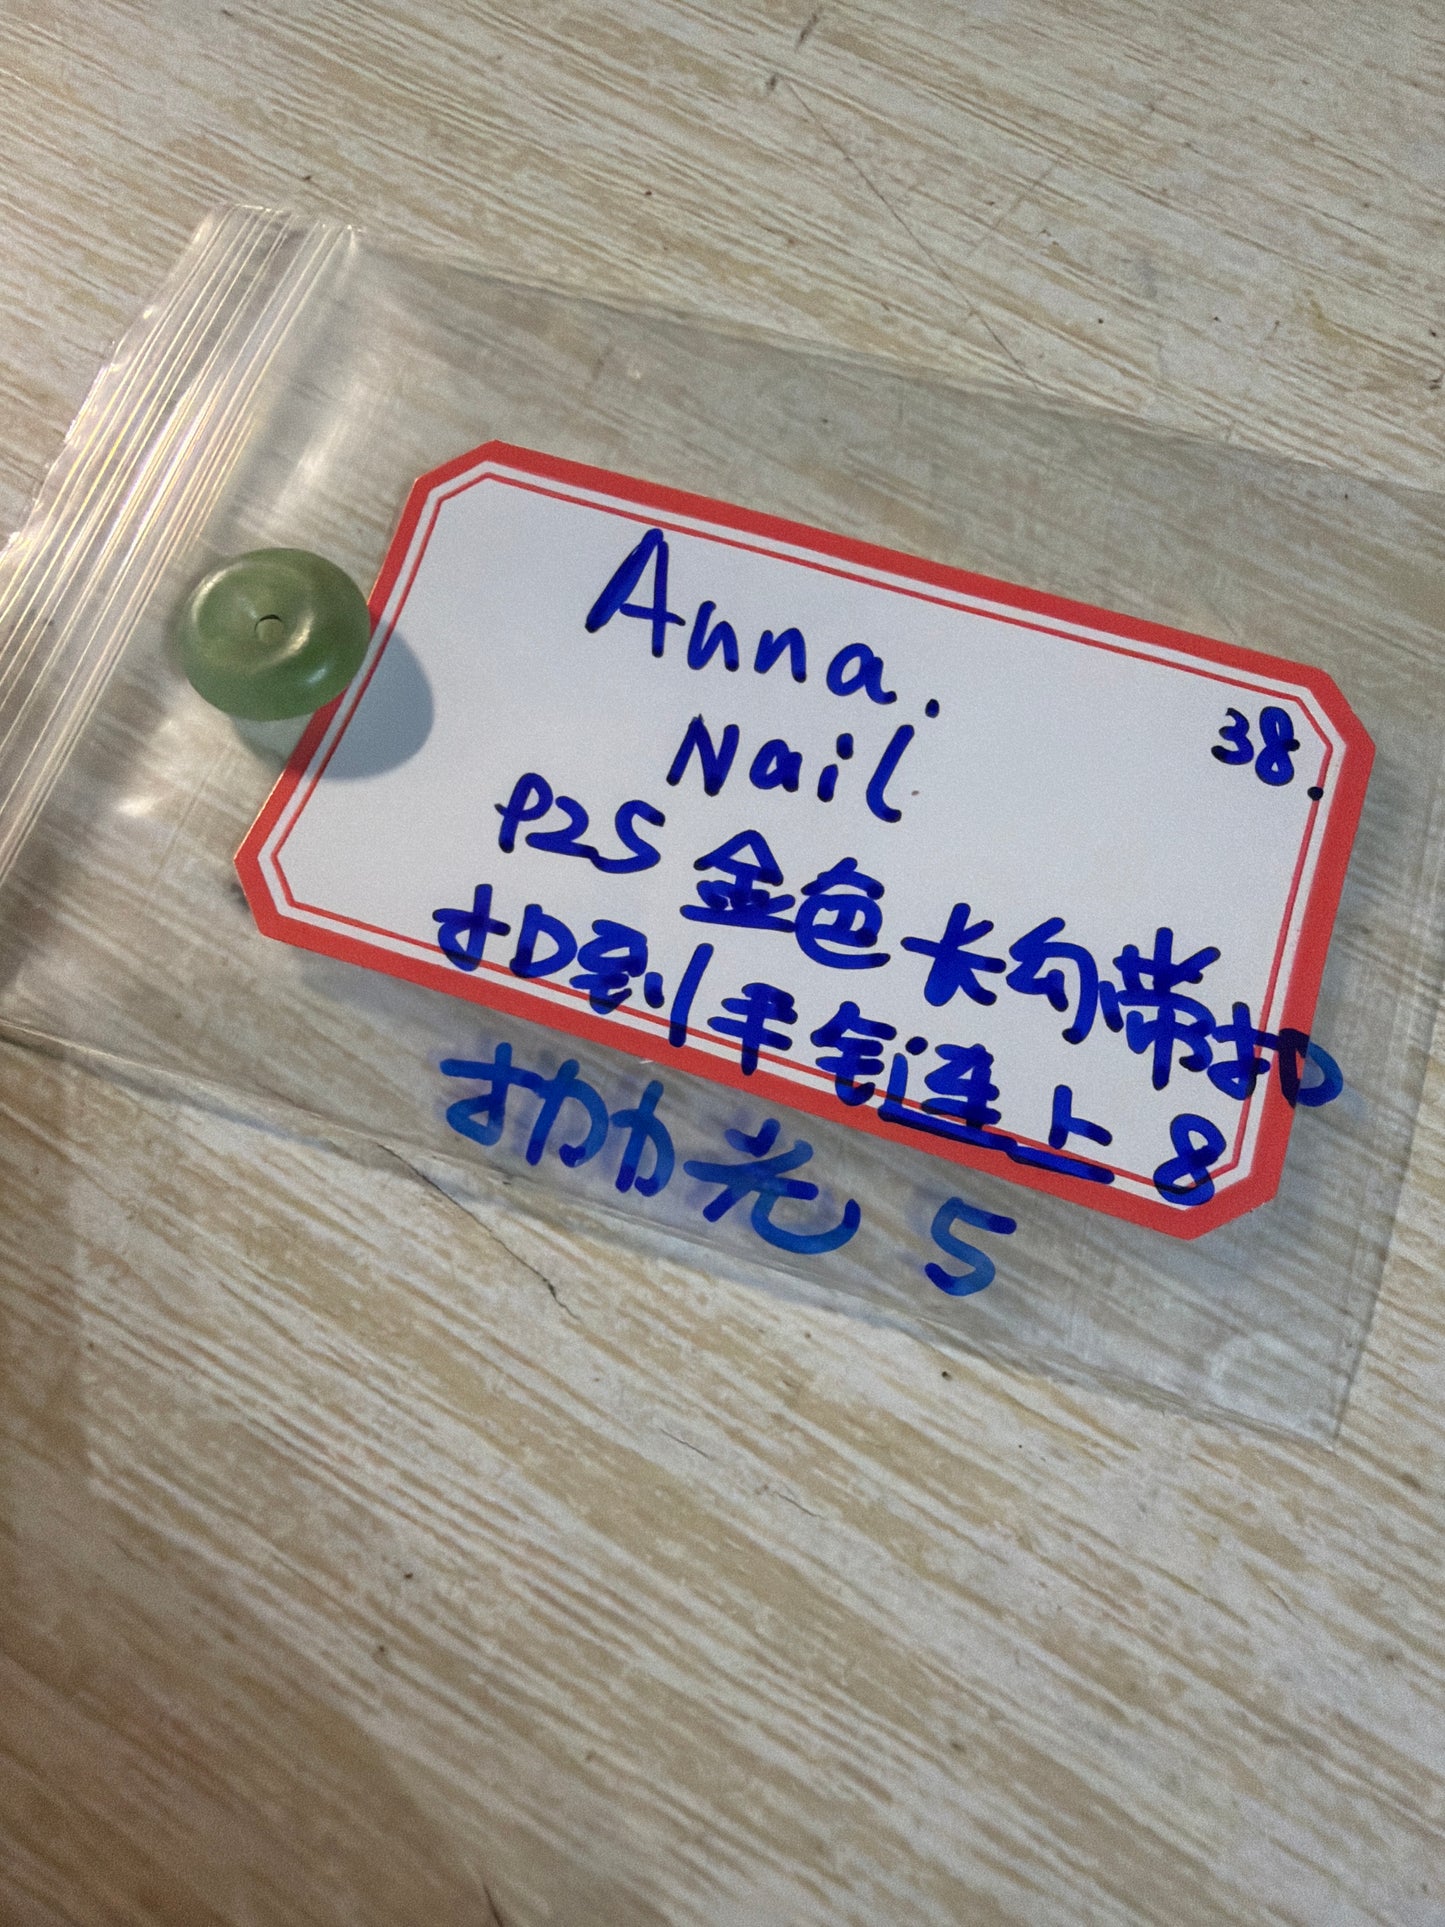 Anna.
38.
Nail
P25 金色长勾带扣
扣到手链上 8
抛光 5